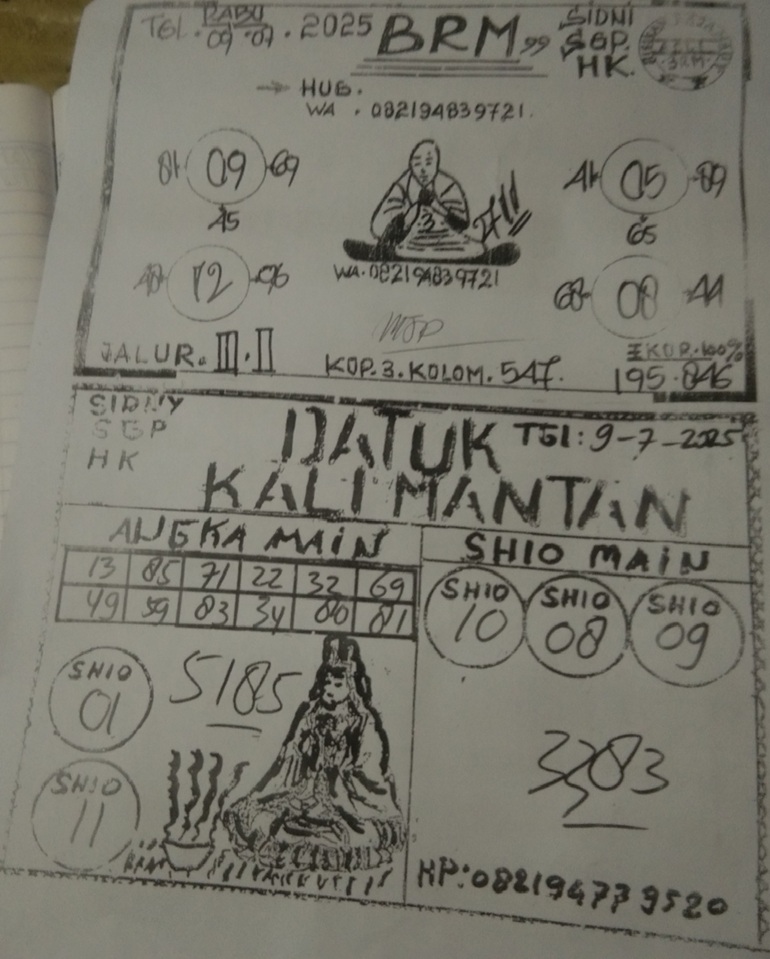 TGL. RABU
09.07.2025
BRM"
SIDNI
SGP.
HK.
HUB.
WA. 082194839721.
81 09 69
45
41 05 89
65
2711
3
72 96
WA.082194839721
68 08 44
JALUR. III. II
KOP. 3. KOLOM. 547.
EKOR. 100%
195.846
SIDNY
SGP
HK
DATUK
TGl: 9-7-2025
KALIMANTAN
ANGKA MAIN
SHIO MAIN
13 85 71 22 32 69
49 59 83 34 80 81
SHIO
10
SHIO
08
SHIO
09
SHIO
01
5185
SHIO
11
3283
HP:082194779520